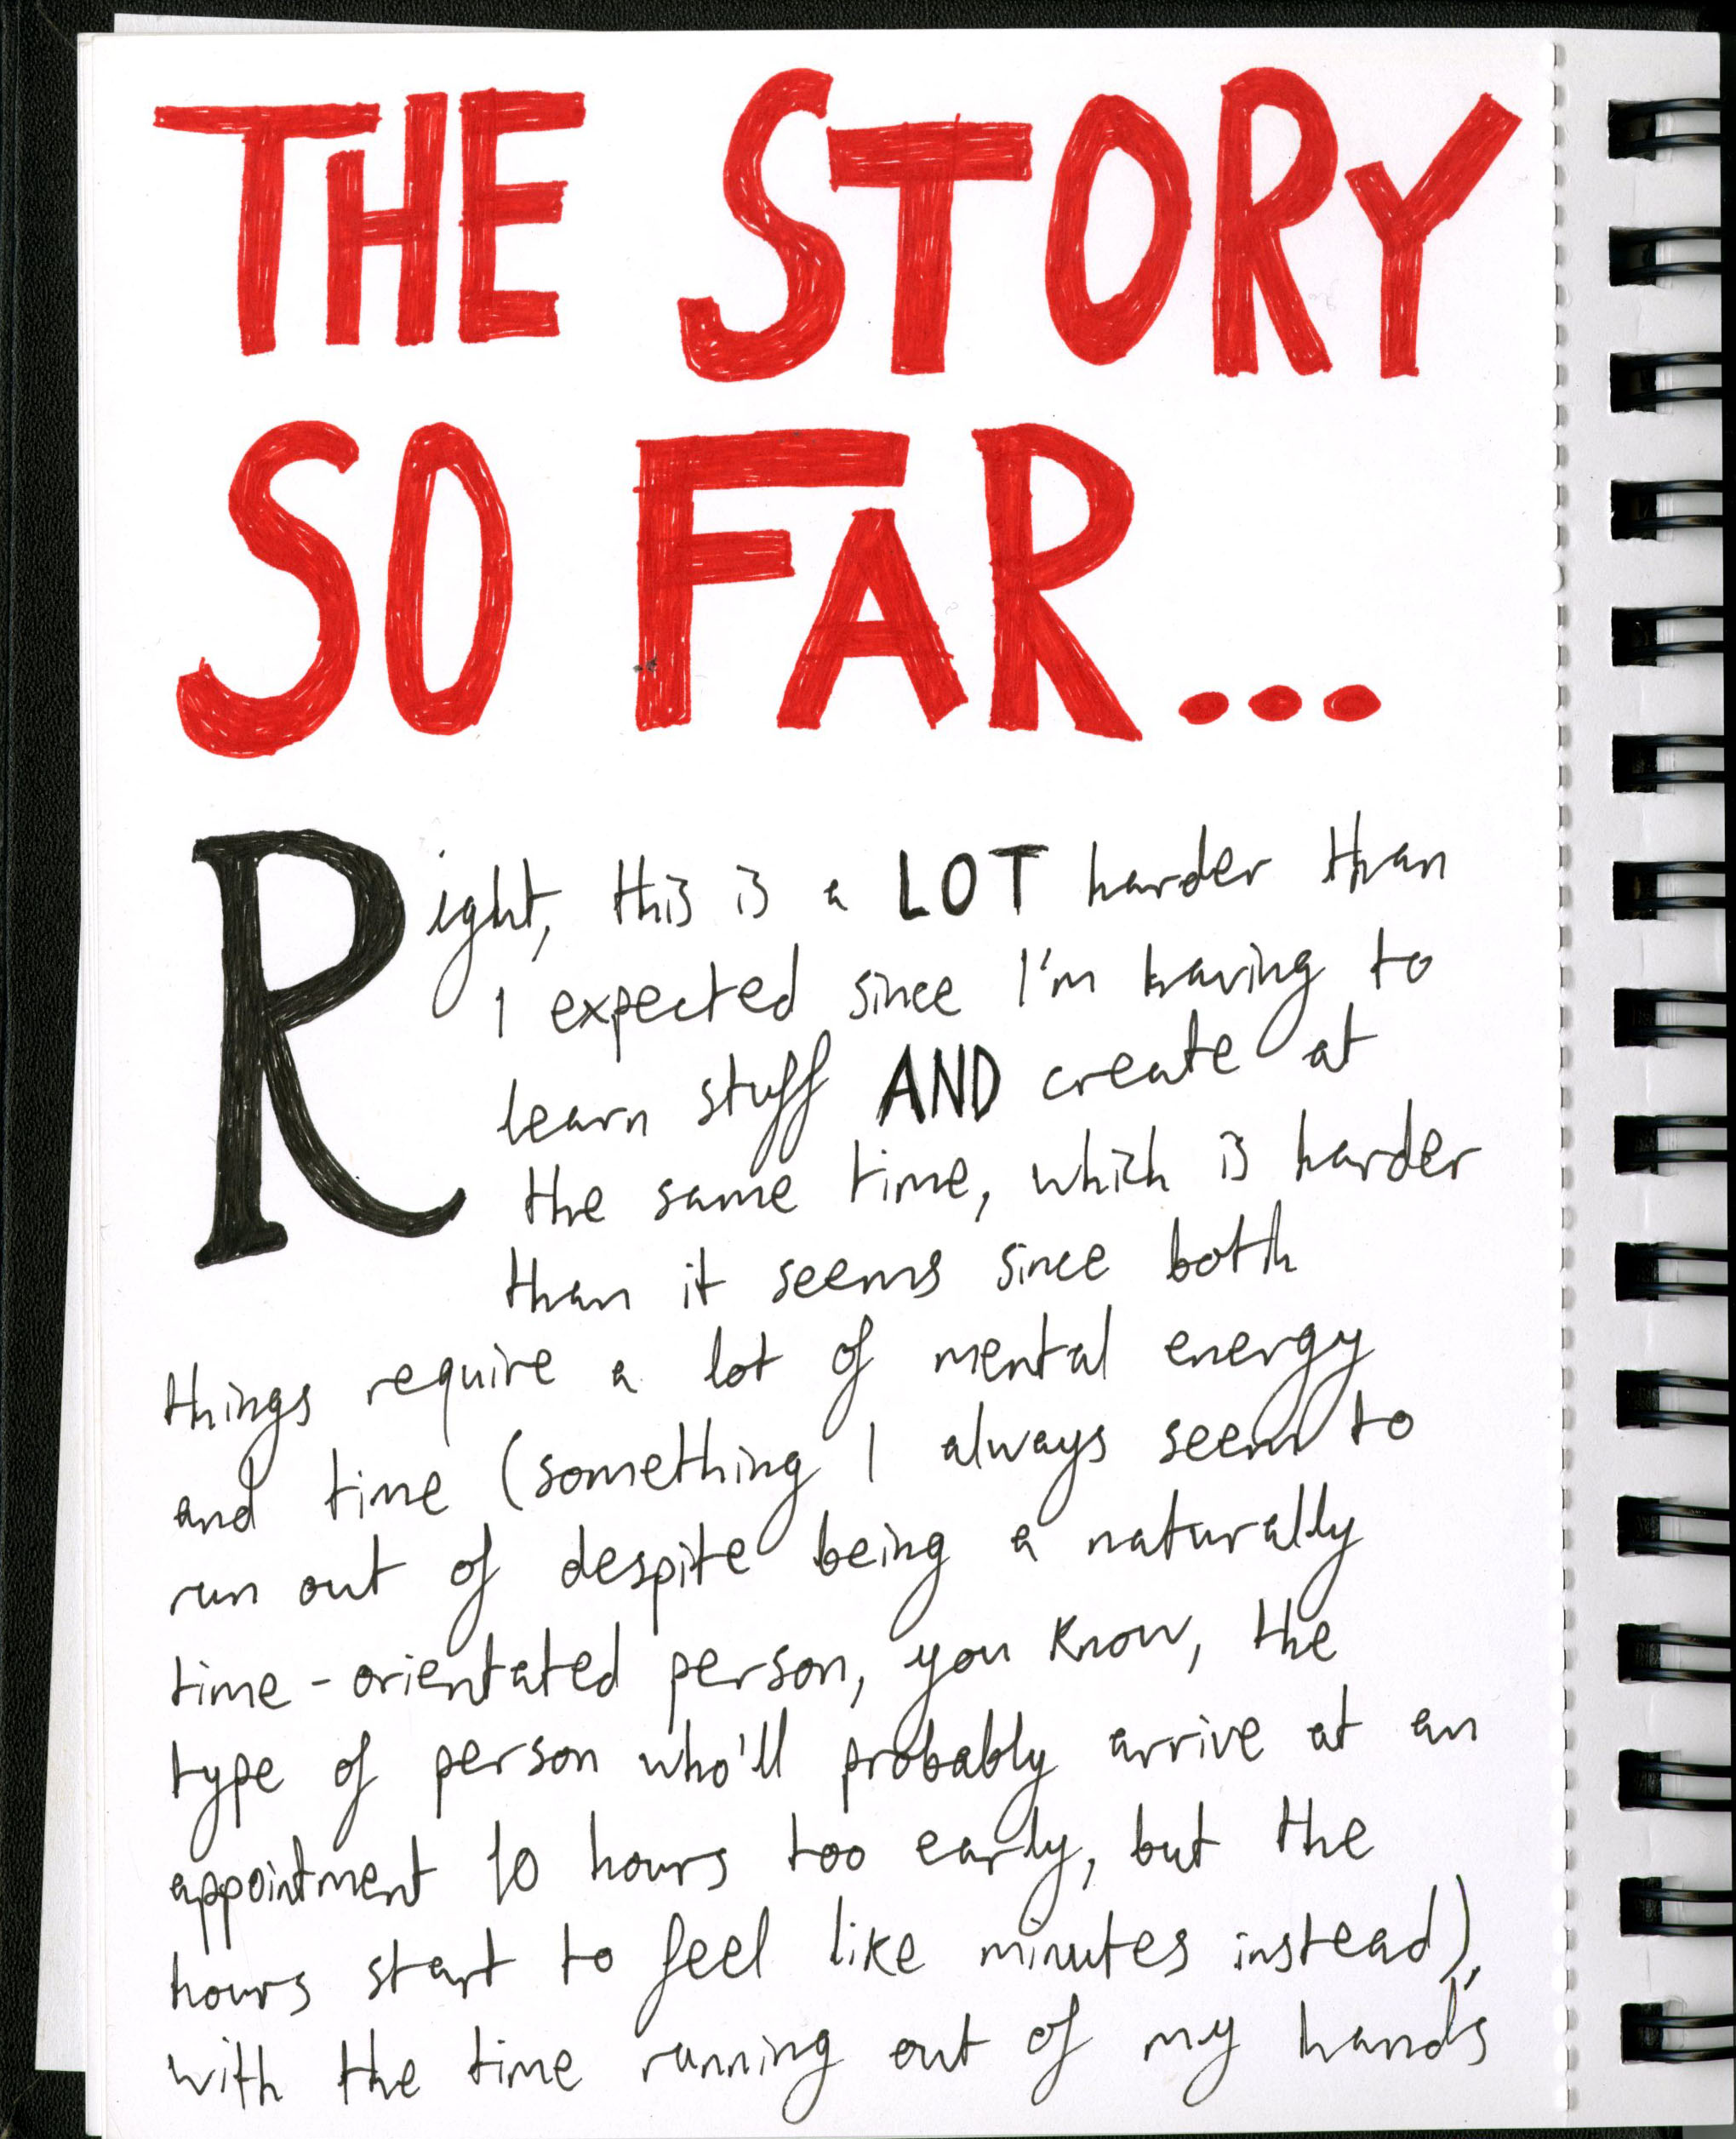 THE STORY
SO FAR...
Right, this is a LOT harder than
I expected since I'm having to
learn stuff AND create at
the same time, which is harder
than it seems since both
things require a lot of mental energy
and time (something I always seem to
run out of despite being a naturally
time-orientated person, you know, the
type of person who'll probably arrive at an
appointment 10 hours too early, but the
hours start to feel like minutes instead),
with the time running out of my hands